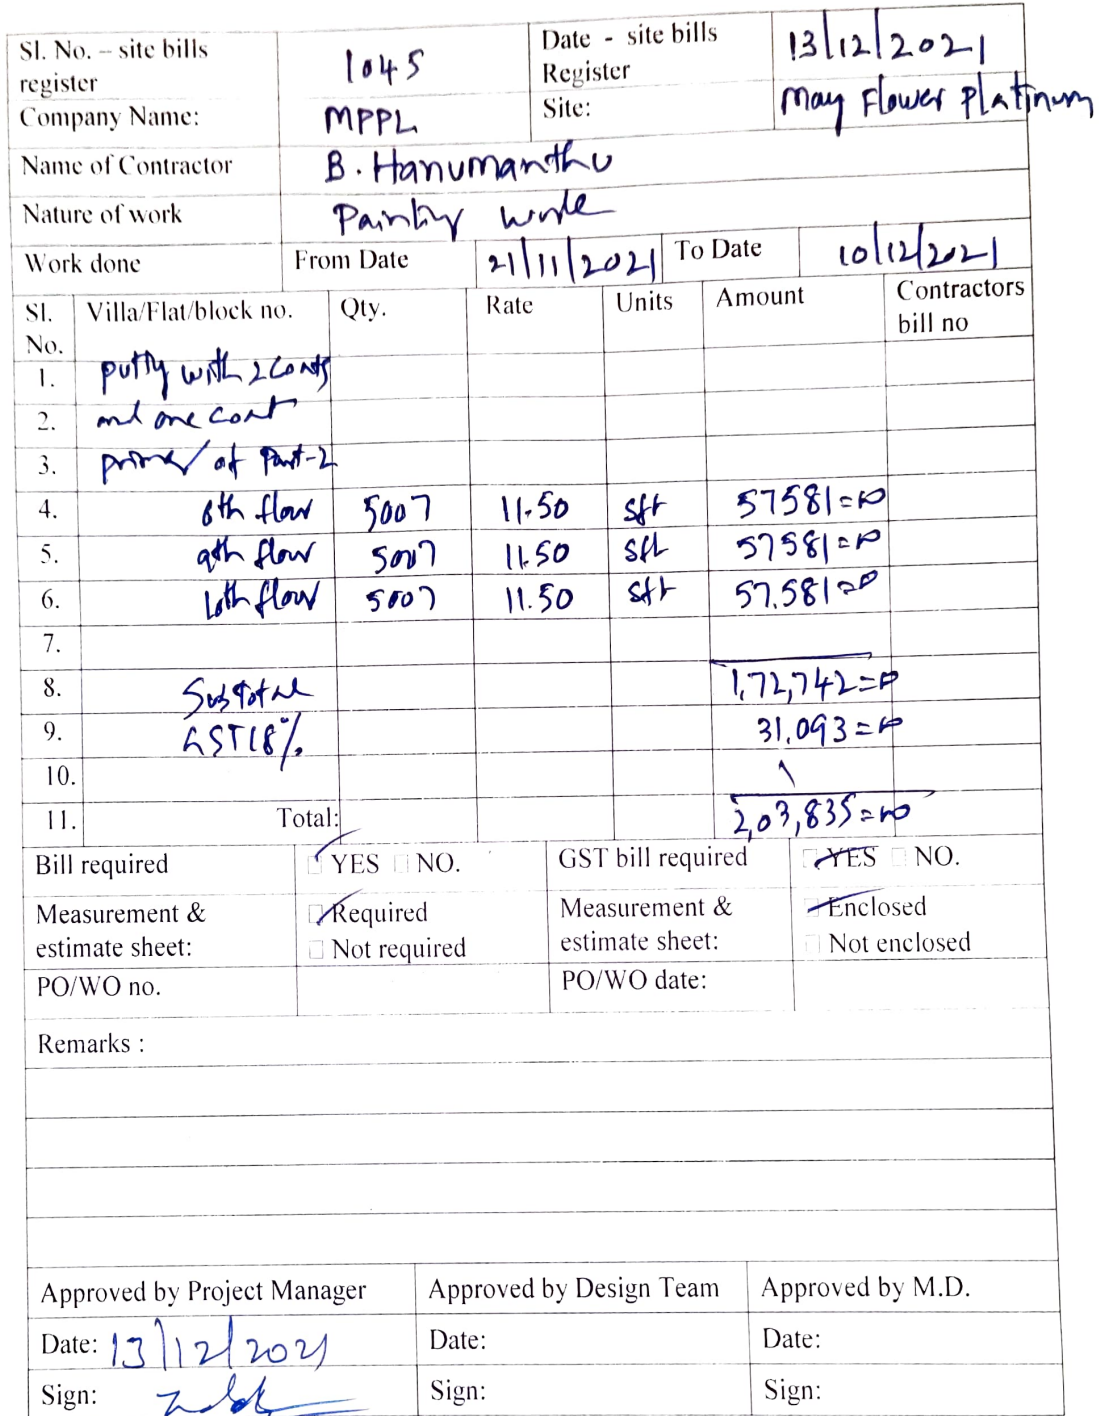 Sl. No. – site bills register 1045 Date - site bills Register 13/12/2021
Company Name: MPPL Site: May Flower Platinum
Name of Contractor B. Hanumanthu
Nature of work Painting work
Work done From Date 21/11/2021 To Date 10/12/2021
Sl. No. Villa/Flat/block no. Qty. Rate Units Amount Contractors bill no
1. putty with 2 coats
2. and one coat
3. primer of Part-2
4. 8th floor 5007 11.50 sft 57581=00
5. 9th floor 5007 11.50 sft 57581=00
6. 10th floor 5007 11.50 sft 57.581=00
7.
8. Sub Total 1,72,742=00
9. GST18% 31.093=00
10.
11. Total: 2,03,835=00
Bill required YES NO. GST bill required YES NO.
Measurement & estimate sheet: Required Not required Measurement & estimate sheet: Enclosed Not enclosed
PO/WO no. PO/WO date:
Remarks :
Approved by Project Manager Approved by Design Team Approved by M.D.
Date: 13/12/2021 Date: Date:
Sign: Sign: Sign: